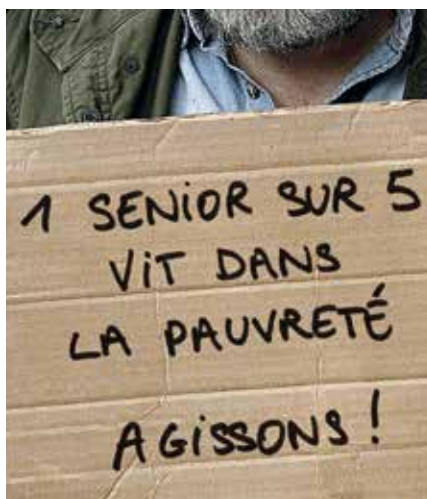 1 SENiOR SUR 5
ViT DANS
LA PAUVRETÉ
AGiSSONS !